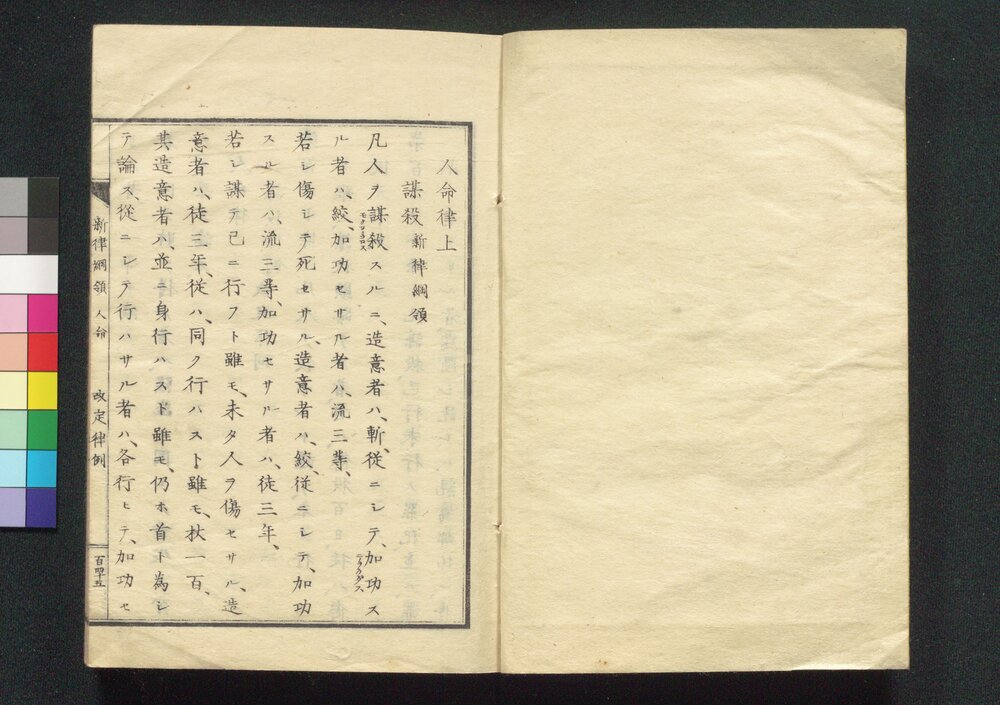 人命律上
謀殺 新律綱領
凡人ヲ謀殺スルニ、造意者ハ、斬、従ニシテ、加功ス
ル者ハ、絞、加功セサル者ハ、流三等、
若シ傷シテ死セサル、造意者ハ、絞、従ニシテ、加功
スル者ハ、流三等、加功セサル者ハ、徒三年、
若シ謀テ已ニ行フト雖モ、未タ人ヲ傷セサル、造
意者ハ、徒三年、従ハ、同ク行ハスト雖モ、杖一百、
其造意者ハ、並ニ身行ハスト雖モ、仍ホ首ト為シ
テ論ス、従ニシテ行ハサル者ハ、各行ヒテ、加功セ
新律綱領 人命 改定律例
百四十五